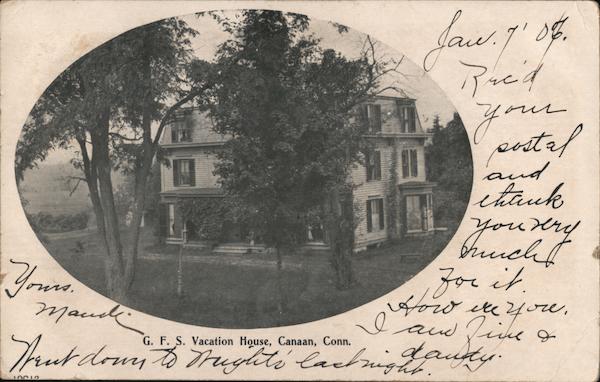 Jan. 7' 07.
Rec'd
your
postal
and
thank
you very
much
for it.
How are you.
I am fine &
dandy.
Yours.
Maude.
G. F. S. Vacation House, Canaan, Conn.
Went down to Wright's last night.